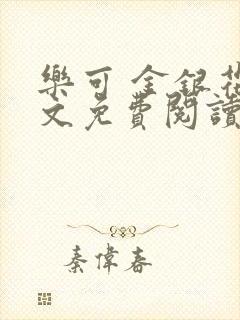 樂可 金銀花
文免費閱讀
秦偉春